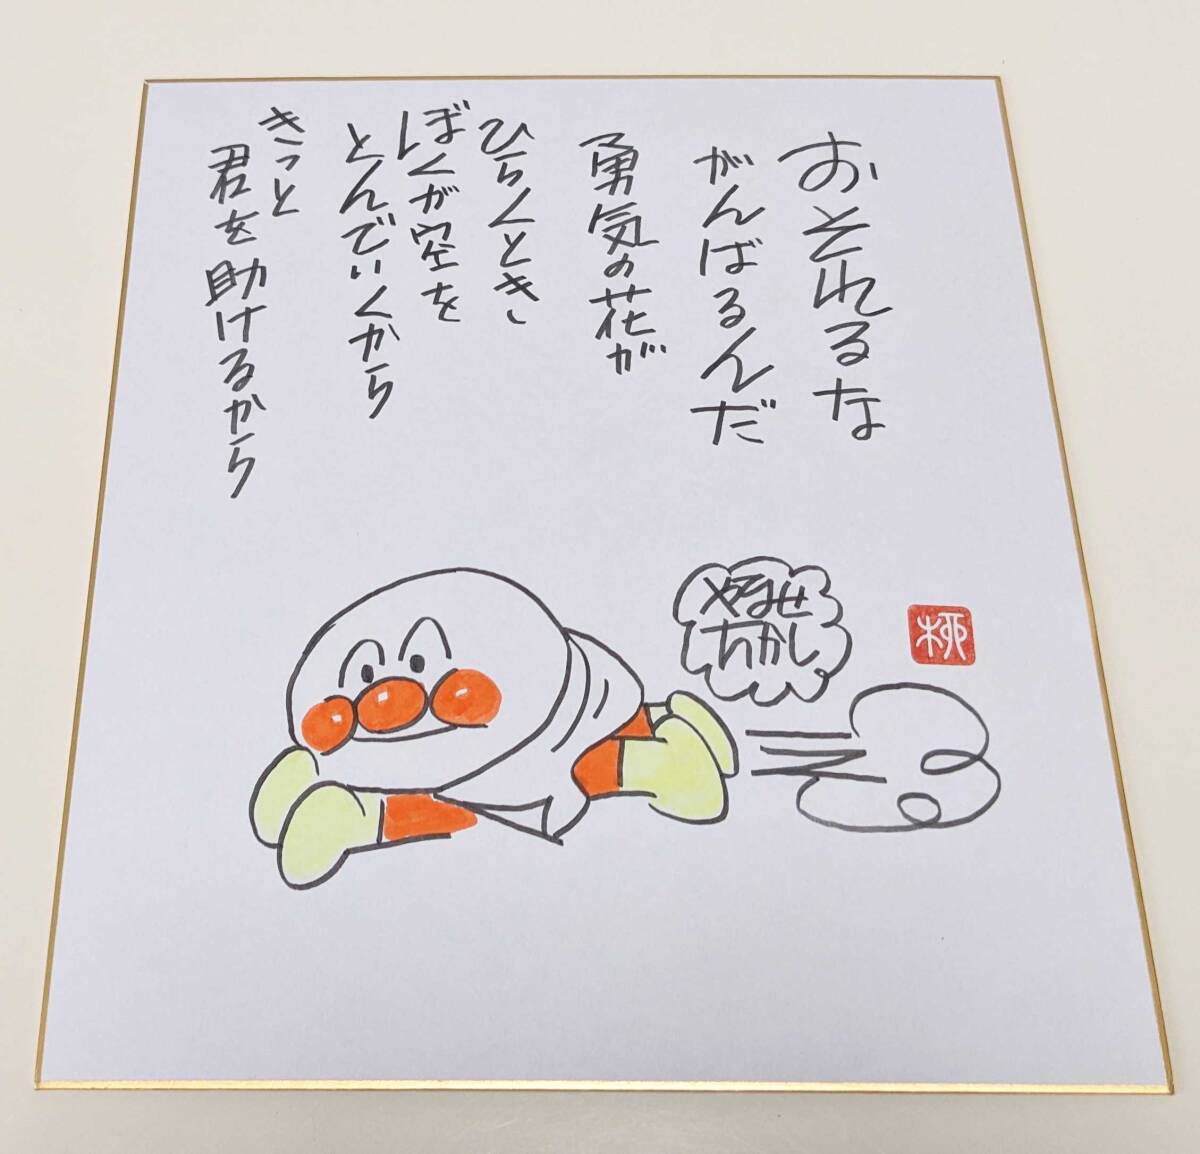 おそれるな
がんばるんだ
勇気の花が
ひらくとき
ぼくが空を
とんでいくから
きっと
君を助けるから
やなせ
たかし
柳